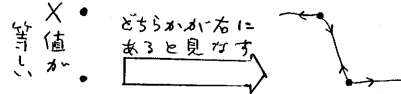 X値が
等しい
どちらかが右に
あると見なす